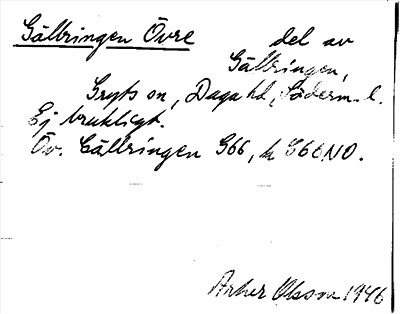 Gällringen Övre del av
Gällringen,
Gryts sn, Daga hd, Söderm. l.
Ej brukligt.
Öv. Gällringen G66, h G66NO.
Arher Olsson 1946